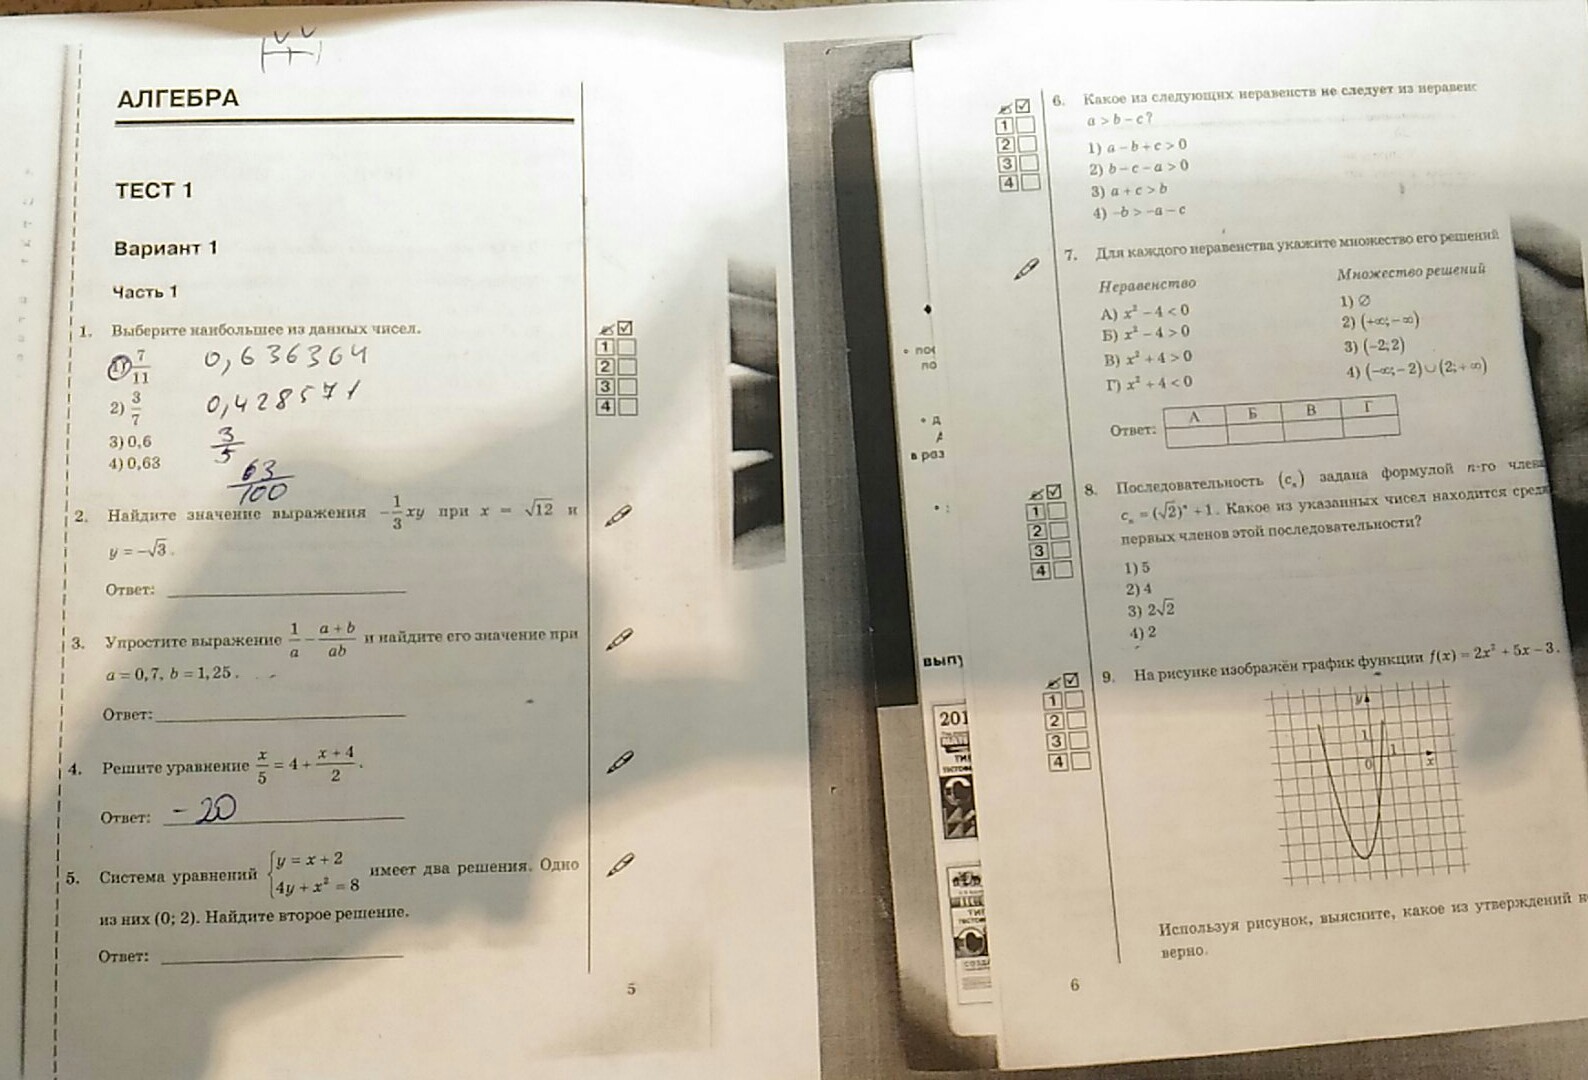 АЛГЕБРА
ТЕСТ 1
Вариант 1
Часть 1
1. Выберите наибольшее из данных чисел.
1) 7/11 0,636364
2) 3/7 0,428571
3) 0,6 3/5
4) 0,63 63/100
1
2
3
4
2. Найдите значение выражения -1/3 xy при x = √12 и
y = -√3.
Ответ:
3. Упростите выражение 1/a - (a + b)/ab и найдите его значение при
a = 0,7, b = 1,25.
Ответ:
4. Решите уравнение x/5 = 4 + (x + 4)/2.
Ответ: -20
5. Система уравнений { y = x + 2
4y + x² = 8 имеет два решения. Одно
из них (0; 2). Найдите второе решение.
Ответ:
5
6. Какое из следующих неравенств не следует из неравенс
a > b - c?
1) a - b + c > 0
2) b - c - a > 0
3) a + c > b
4) -b > -a - c
1
2
3
4
7. Для каждого неравенства укажите множество его решений
Неравенство Множество решений
А) x² - 4 < 0 1) ∅
Б) x² - 4 > 0 2) (+∞; -∞)
В) x² + 4 > 0 3) (-2; 2)
Г) x² + 4 < 0 4) (-∞; -2) ∪ (2; +∞)
Ответ: А Б В Г
8. Последовательность (cₙ) задана формулой n-го члена
cₙ = (√2)ⁿ + 1. Какое из указанных чисел находится сред
первых членов этой последовательности?
1) 5
2) 4
3) 2√2
4) 2
1
2
3
4
9. На рисунке изображён график функции f(x) = 2x² + 5x - 3.
1
2
3
4
y
1
1
0
x
Используя рисунок, выясните, какое из утверждений н
верно.
6
в раз
201